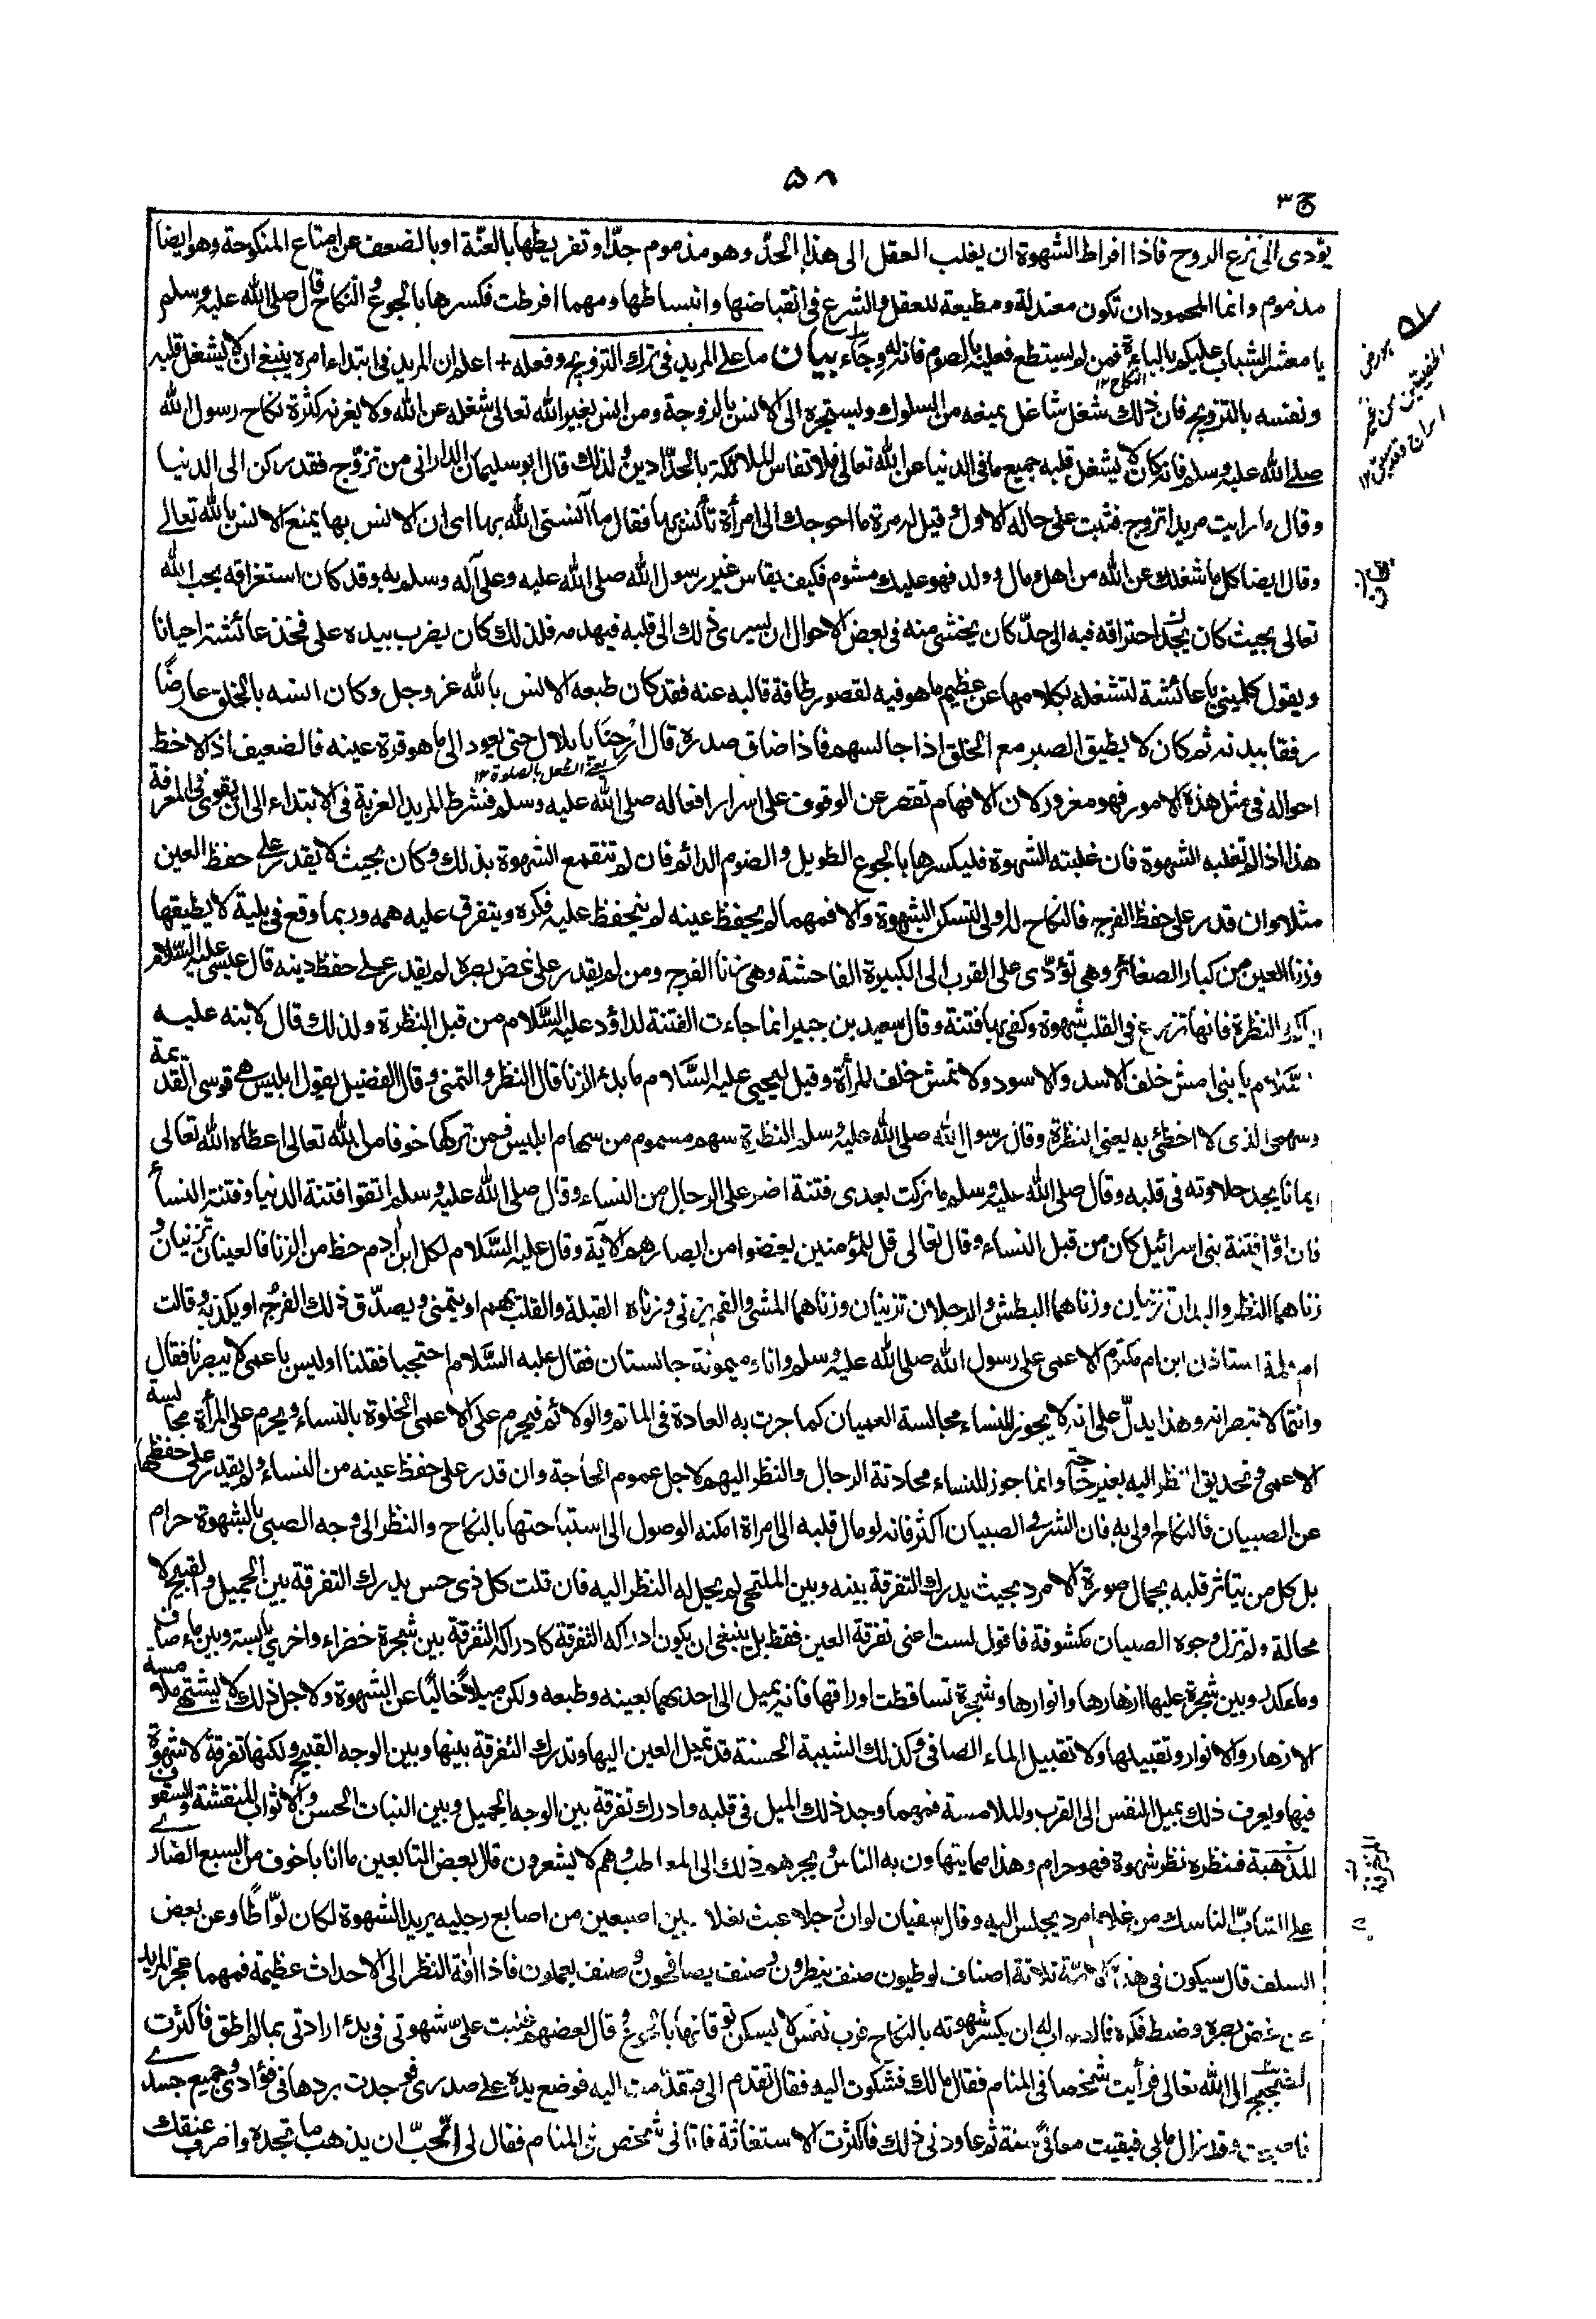 ۵۸
ج ۳
یؤدی الی نزع الروح فاذا افراط الشهوة ان یغلب العقل الی هذا الحدّ وهو مذموم جدّا وتفریطها بالعنّة او بالضعف عن امتاع المنکوحة وهو ایضا
مذموم وانما المحمود ان تکون معتدلة ومطیعة للعقل والشرع فی انقباضها وانبساطها ومهما افرطت فکسرها بالجوع والنکاح قال صلی الله علیه وسلم
یا معشر الشباب علیکم بالباءة فمن لم یستطع فعلیه بالصوم فانه له وجاء بیان ما علی المرید فی ترك التزویج وفعله + اعلم ان المرید فی ابتداء امره ینبغی ان لا یشغل قلبه
ونفسه بالتزویج فان ذلك شغل شاغل یمنعه من السلوك ویستجره الی الانس بالزوجة ومن انس بغیر الله تعالی شغله عن الله ولا یغرنه کثرة نکاح رسول الله
صلی الله علیه وسلم فانه کان لا یشغل قلبه جمیع ما فی الدنیا عن الله تعالی فلا تقاس الملائکة بالحدّادین ولذلك قال ابو سلیمان الدارانی من تزوّج فقد رکن الی الدنیا
وقال ما رایت مریدا تزوج فثبت علی حاله الاول وقیل له مرة ما احوجك الی امرأة تأنس بها فقال ما آنسنی الله بها ای ان الانس بها یمنع الانس بالله تعالی
وقال ایضا کل ما شغلك عن الله من اهل ومال وولد فهو علیك مشوم فکیف یقاس غیر رسول الله صلی الله علیه وعلی آله وسلم به وقد کان استغراقه بحب الله
تعالی بحیث کان یجد احتراقه فیه الی حدّ کان یخشی منه فی بعض الاحوال ان یسری ذلك الی قلبه فیهدمه فلذلك کان یضرب بیده علی فخذ عائشة احیانا
ویقول کلمینی یا عائشة لتشغله بکلامها عن عظیم ما هو فیه لقصور طاقة قالبه عنه فقد کان طبعه الانس بالله عز وجل وکان انسه بالخلق عارضًا
رفقا ببدنه ثم کان لا یطیق الصبر مع الخلق اذا جالسهم فاذا ضاق صدره قال ارحنا یا بلال حتی یعود الی ما هو قرة عینه فالضعیف اذا لاحظ
احواله فی مثل هذه الامور فهو مغرور لان الافهام تقصر عن الوقوف علی اسرار افعاله صلی الله علیه وسلم فشرط المرید العزبة فی الابتداء الی ان یقوی فی المعرفة
هذا اذا لم تغلبه الشهوة فان غلبته الشهوة فلیکسرها بالجوع الطویل والصوم الدائم فان لم تنقمع الشهوة بذلك وکان بحیث لا یقدر علی حفظ العین
مثلا وان قدر علی حفظ الفرج فالنکاح له اولی لتسکن الشهوة والا فمهما لم یحفظ عینه لم ینحفظ علیه فکره ویتفرق علیه همه وربما وقع فی بلیة لا یطیقها
وزنا العین من کبار الصغائر وهی تؤدّی علی القرب الی الکبیرة الفاحشة وهی زنا الفرج ومن لم یقدر علی غض بصره لم یقدر علی حفظ دینه قال عیسی علیه السلام
ایاکم والنظرة فانها تزرع فی القلب شهوة وکفی بها فتنة وقال سعید بن جبیر انما جاءت الفتنة لداؤد علیه السَّلام من قبل النظرة ولذلك قال لابنه علیه
السَّلام یا بنی امش خلف الاسد والاسود ولا تمش خلف المرأة وقیل لیحیی علیه السَّلام ما بدء الزنا قال النظر والتمنی وقال الفضیل یقول ابلیس هی قوسی القدیمة
وسهمی الذی لا اخطئ به یعنی النظرة وقال رسول الله صلی الله علیه وسلم النظرة سهم مسموم من سهام ابلیس فمن ترکها خوفا من الله تعالی اعطاه الله تعالی
ایمانا یجد حلاوته فی قلبه وقال صلی الله علیه وسلم ما ترکت بعدی فتنة اضر علی الرجال من النساء وقال صلی الله علیه وسلم اتقوا فتنة الدنیا وفتنة النساء
فان اوّل فتنة بنی اسرائیل کان من قبل النساء وقال تعالی قل للمؤمنین یغضوا من ابصارهم الآیة وقال علیه السَّلام لکل ابن آدم حظ من الزنا فالعینان تزنیان و
زناهما النظر والیدان تزنیان وزناهما البطش والرجلان تزنیان وزناهما المشی والفم یزنی وزناه القبلة والقلب یهم او یتمنی ویصدّق ذلك الفرج او یکذبه وقالت
ام سلمة استاذن ابن ام مکتوم الاعمی علی رسول الله صلی الله علیه وسلم وانا ومیمونة جالستان فقال علیه السَّلام احتجبا فقلنا اولیس باعمی لا یبصرنا فقال
وانتما لا تبصرانه وهذا یدلّ علی انه لا یجوز للنساء مجالسة العمیان کما جرت به العادة فی المآتم والولائم فیحرم علی الاعمی الخلوة بالنساء ویحرم علی المرأة مجالسة
الاعمی وتحدیق النظر الیه بغیر حاجة وانما جوز للنساء محادثة الرجال والنظر الیهم لاجل عموم الحاجة وان قدر علی حفظ عینه من النساء ولم یقدر علی حفظها
عن الصبیان فالنکاح اولی به فان الشر فی الصبیان اکثر فانه لو مال قلبه الی امراة امکنه الوصول الی استباحتها بالنکاح والنظر الی وجه الصبی بالشهوة حرام
بل کل من یتاثر قلبه بجمال صورة الامرد بحیث یدرك التفرقة بینه وبین الملتحی لم یحل له النظر الیه فان قلت کل ذی حس یدرك التفرقة بین الجمیل والقبیح لا
محالة ولم تزل وجوه الصبیان مکشوفة فاقول لست اعنی تفرقة العین فقط بل ینبغی ان یکون ادراکه التفرقة کادراکه التفرقة بین شجرة خضراء واخری یابسة وبین ماء صاف
وماء کدر وبین شجرة علیها ازهارها وانوارها وشجرة تساقطت اوراقها فانه یمیل الی احدهما بعینه وطبعه ولکن میلاً خالیًا عن الشهوة ولاجل ذلك لا یشتهی ملامسة
الازهار والانوار وتقبیلها ولا تقبیل الماء الصافی وکذلك الشیبة الحسنة قد تمیل العین الیها وتدرك التفرقة بینها وبین الوجه القبیح ولکنها تفرقة لا شهوة
فیها ویعرف ذلك بمیل النفس الی القرب والملامسة فمهما وجد ذلك المیل فی قلبه وادرك تفرقة بین الوجه الجمیل وبین النبات الحسن والاثواب المنقشة والسقوف
المذهبة فنظره نظر شهوة فهو حرام وهذا مما یتهاون به الناس ویجرهم ذلك الی المعاطب وهم لا یشعرون قال بعض التابعین ما انا باخوف من السبع الضاری
علی الشابّ الناسك من غلام امرد یجلس الیه وقال سفیان لو ان رجلا عبث بغلام بین اصبعین من اصابع رجلیه یرید الشهوة لکان لوّاطًا وعن بعض
السلف قال سیکون فی هذه الامّة ثلاثة اصناف لوطیون صنف ینظرون وصنف یصافحون وصنف یعملون فاذا آفة النظر الی الاحداث عظیمة فمهما عجز المرید
عن غض بصره وضبط فکره فالصواب له ان یکسر شهوته بالنکاح فرب نفس لا یسکن توقانها بالجوع وقال بعضهم غلبت علیّ شهوتی فی بدء ارادتی بما لم اطق فاکثرت
الضجیج الی الله تعالی فرأیت شخصا فی المنام فقال مالك فشکوت الیه فقال تقدم الی فتقدّمت الیه فوضع یده علی صدری فوجدت بردها فی فؤادی وجمیع جسدی
فاصبحت وقد زال ما بی فبقیت معافًی سنة ثم عاودنی ذلك فاکثرت الاستغاثة فاتانی شخص فی المنام فقال لی اتحبّ ان یذهب ما تجده واضرب عنقك